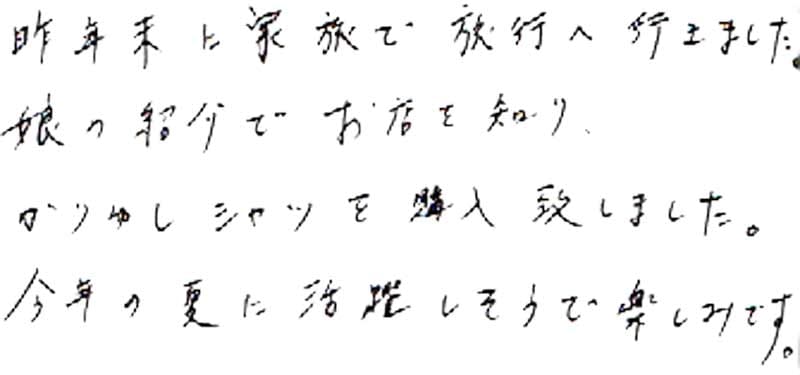 昨年末に家族で旅行へ行きました。
娘の紹介でお店を知り、
かりゆしシャツを購入致しました。
今年の夏に活躍しそうで楽しみです。